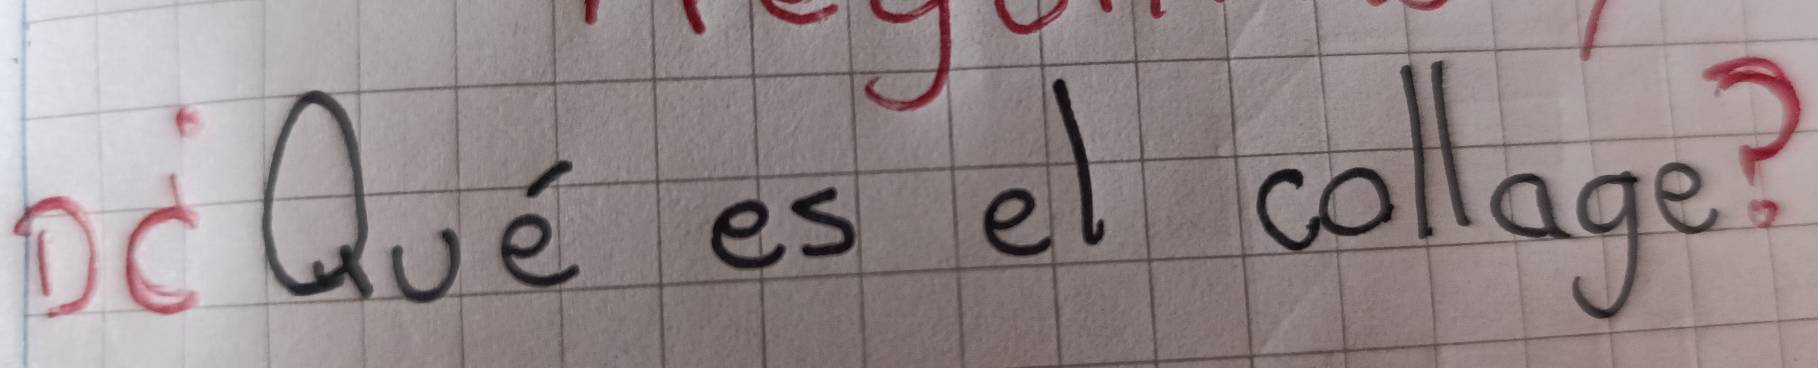 D¿Qué es el collage?